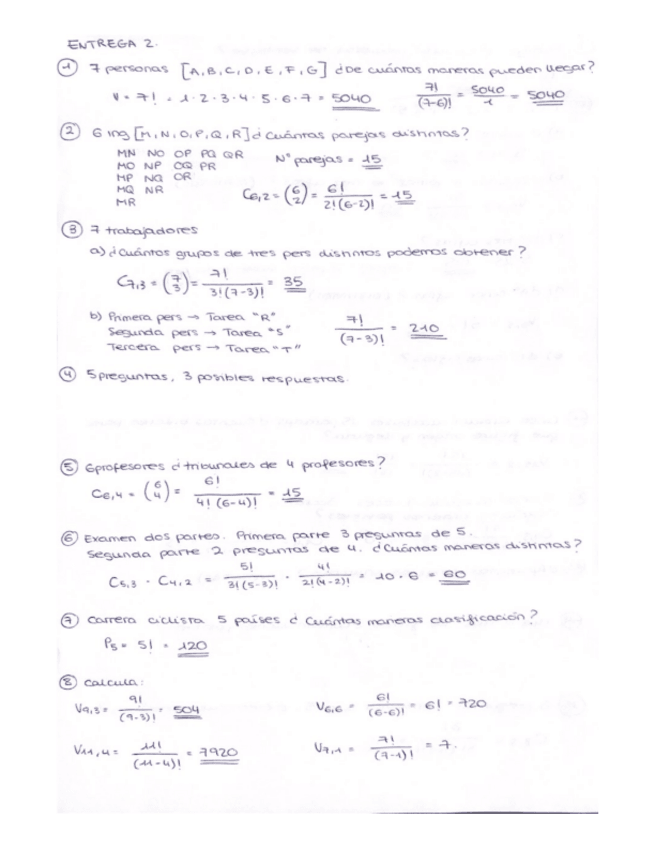 ENTREGA 2.
① 7 personas [A, B, C, D, E, F, G] ¿De cuántas maneras pueden llegar?
V = 7! = 1·2·3·4·5·6·7 = 5040   7!/(7-6)! = 5040/1 = 5040
② 6 ing [M, N, O, P, Q, R] ¿Cuántas parejas distintas?
MN NO OP PQ QR
MO NP OQ PR   Nº parejas = 15
MP NQ OR
MQ NR   C6,2 = (6 2) = 6!/2!(6-2)! = 15
MR
③ 7 trabajadores
a) ¿Cuántos grupos de tres pers distintos podemos obtener?
C7,3 = (7 3) = 7!/3!(7-3)! = 35
b) Primera pers → Tarea "R"
Segunda pers → Tarea "S"   7!/(7-3)! = 210
Tercera pers → Tarea "T"
④ 5 preguntas, 3 posibles respuestas.
⑤ 6 profesores ¿tribunales de 4 profesores?
C6,4 = (6 4) = 6!/4!(6-4)! = 15
⑥ Examen dos partes. Primera parte 3 preguntas de 5.
Segunda parte 2 preguntas de 4. ¿Cuántas maneras distintas?
C5,3 · C4,2 = 5!/3!(5-3)! · 4!/2!(4-2)! = 10 · 6 = 60
⑦ Carrera ciclista 5 países ¿Cuántas maneras clasificación?
P5 = 5! = 120
⑧ Calcula:
V9,3 = 9!/(9-3)! = 504   V6,6 = 6!/(6-6)! = 6! = 720
V11,4 = 11!/(11-4)! = 7920   V7,1 = 7!/(7-1)! = 7.